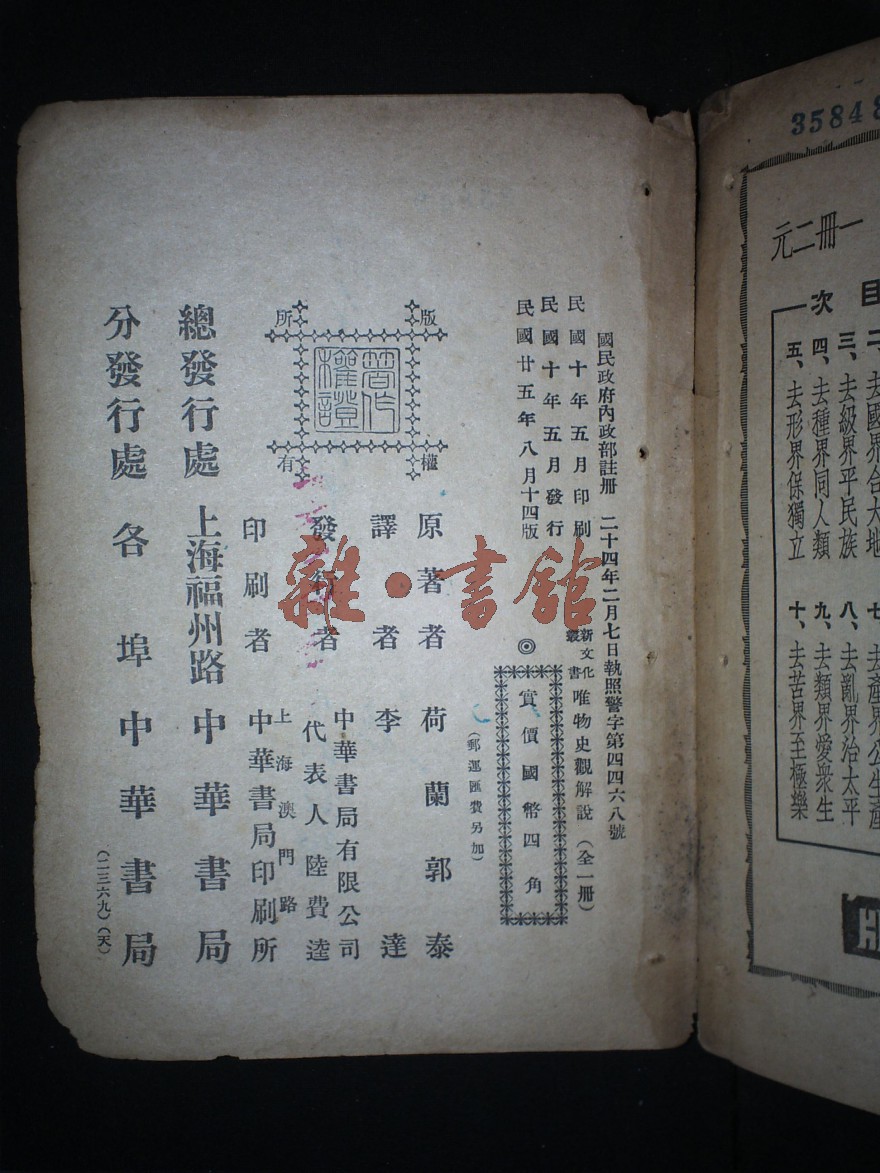 35848
一冊二元
目次
二、去國界合大地
三、去級界平民族
四、去種界同人類
五、去形界保獨立
七、去產界公生產
八、去亂界治太平
九、去類界愛衆生
十、去苦界至極樂
國民政府內政部註冊 二十四年二月七日執照警字第四四六八號
民國十年五月印刷
民國十年五月發行
民國廿五年八月十四版
新文化叢書 唯物史觀解說(全一冊)
◎ 實價國幣四角
(郵運匯費另加)
版權所有
著作權證
原著者 荷蘭郭泰
譯者 李達
發行者 中華書局有限公司
代表人陸費逵
印刷者 上海澳門路
中華書局印刷所
總發行處 上海福州路 中華書局
分發行處 各埠中華書局
(二三六九)(天)
雜·書館